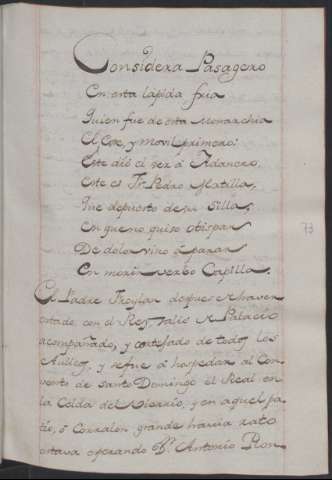 Considera Pasagero
En esta lapida fria
Quien fue de esta Monarchia
El Exe, y movil primero:
Este dió el ser á Adanero,
Este es Fr. Pedro Matilla,
Que depuesto de su Silla,
En que no quiso obispar
De dolor vino á parar
En morir verbo Capilla.
El Padre Froylan despues de haver
estado con el Rey, salio de Palacio
acompañado, y cortejado de todos los
Aulicos, y se fue á hospedar al Con-
vento de Santo Domingo el Real en
la Celda del Vicario, y en aquel pa-
tio, ó Corralon grande havia rato
estava esperando Dn. Antonio Ron
73